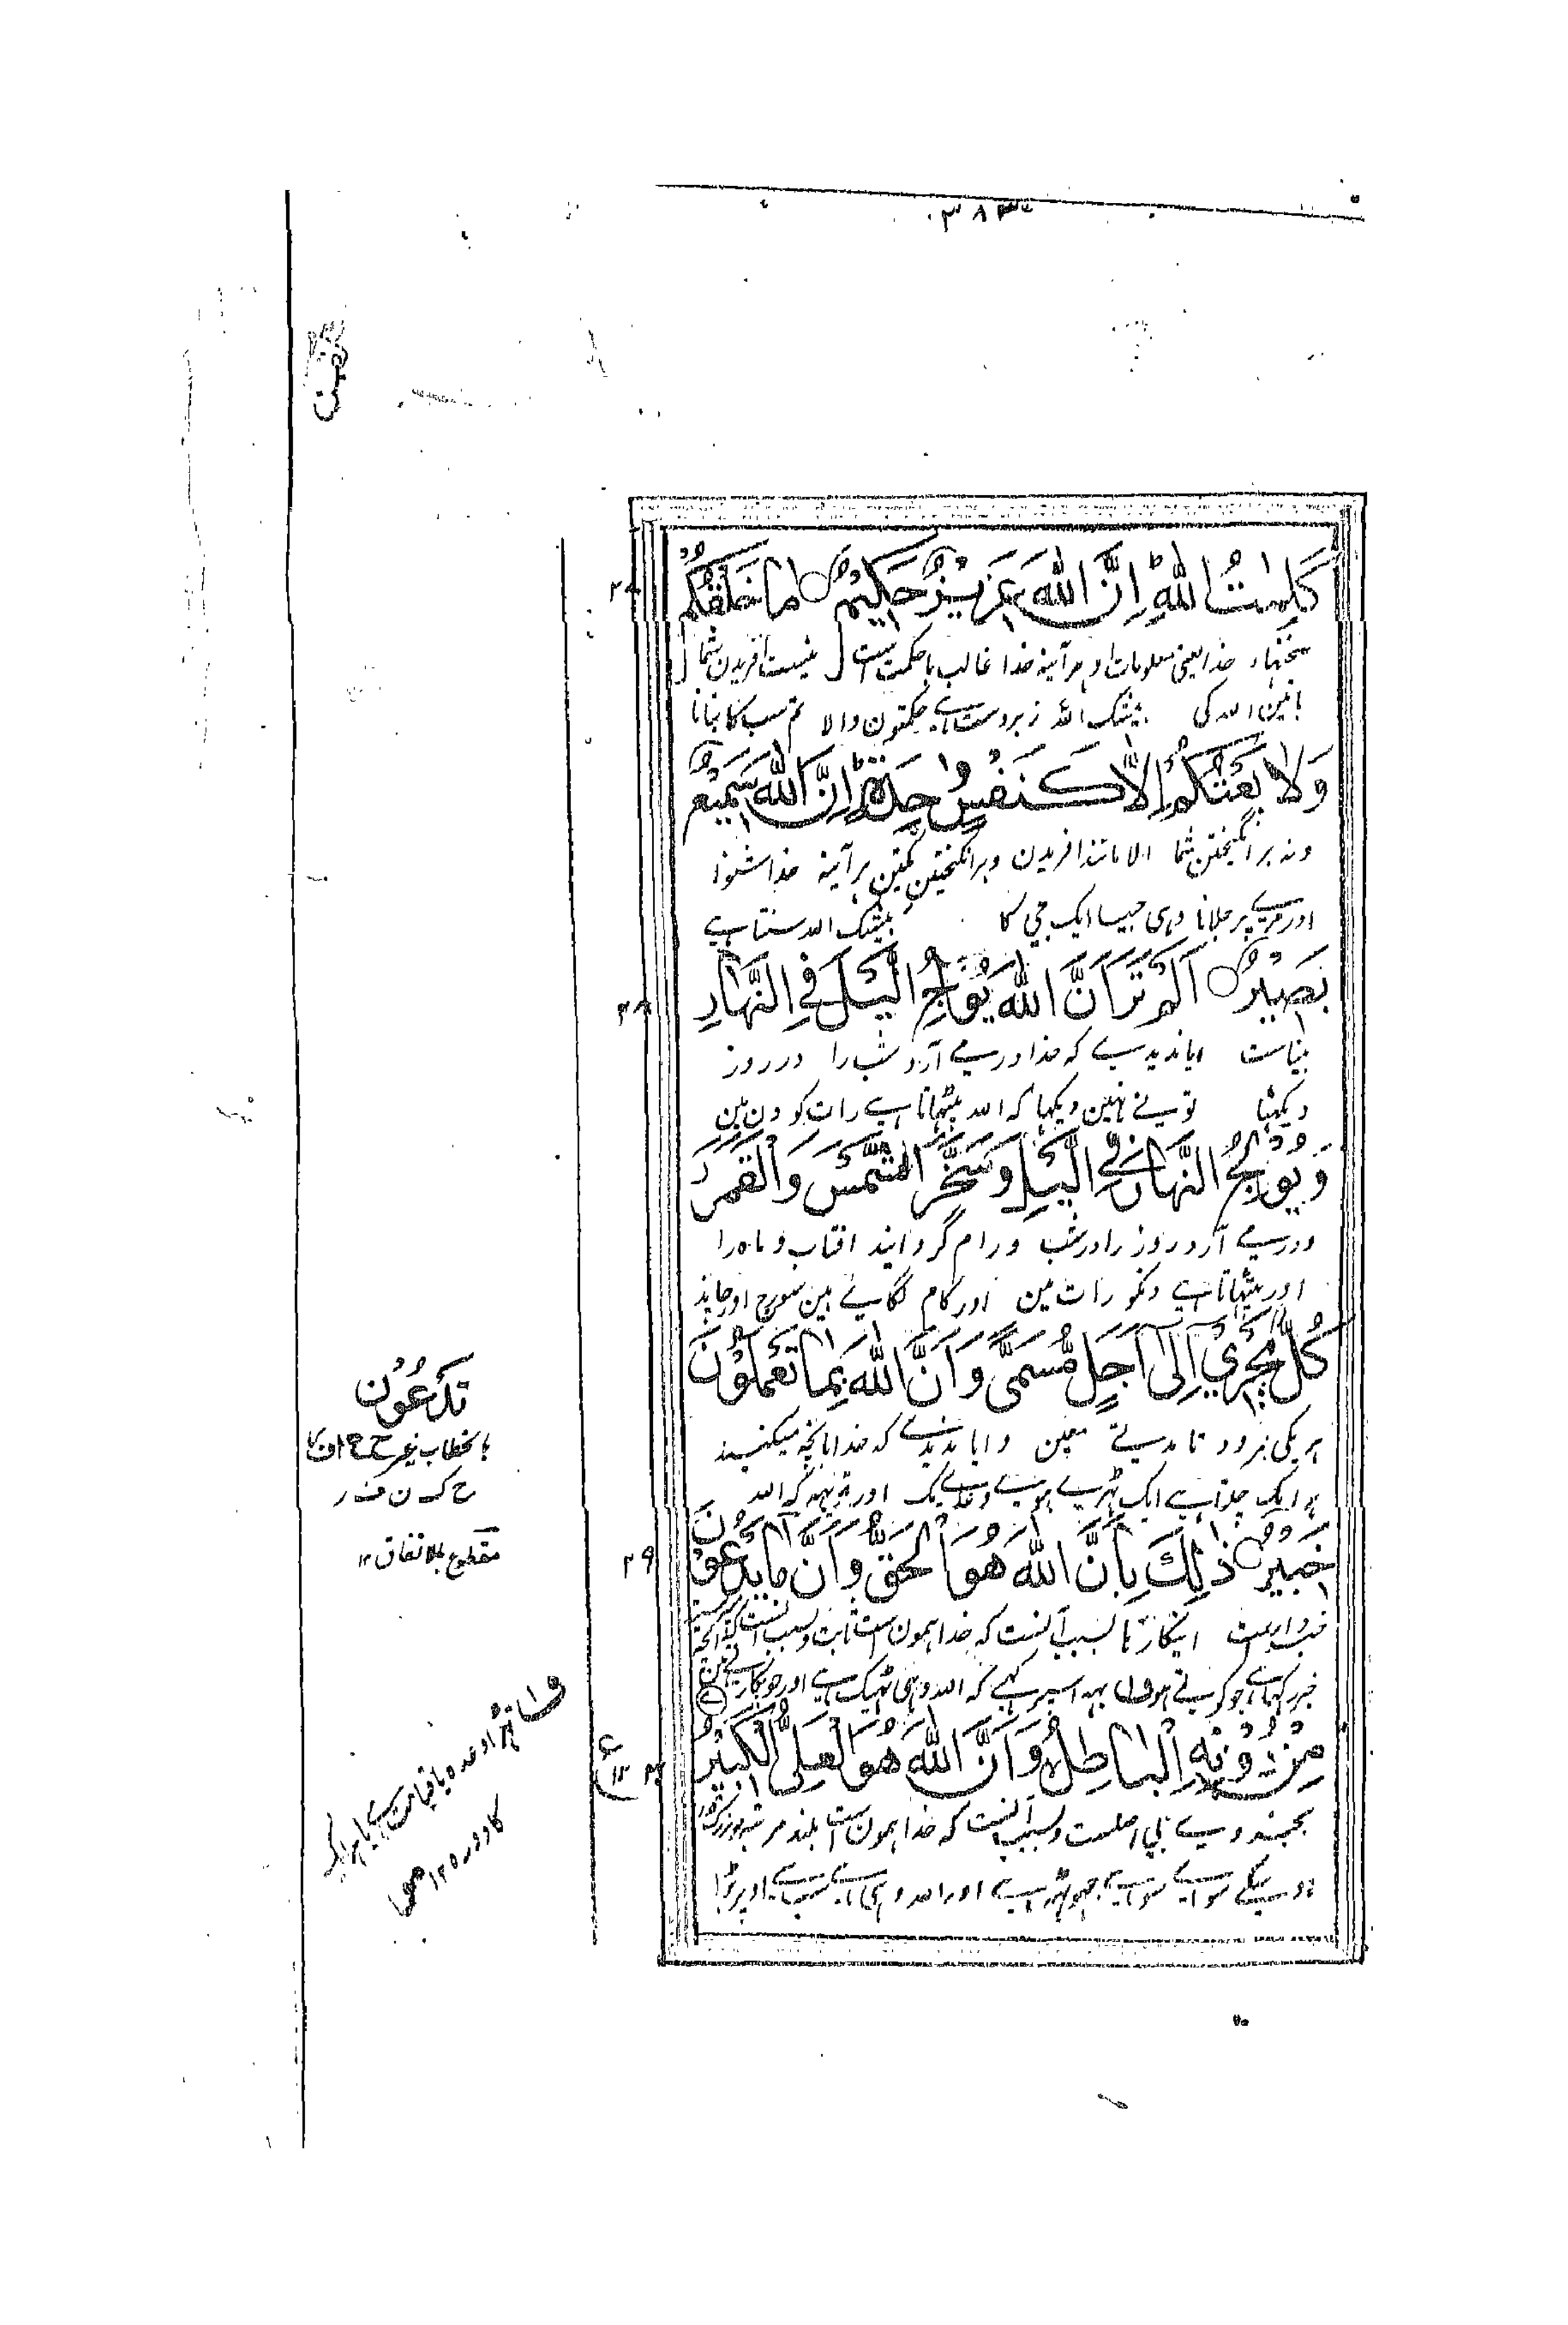 كَلِمٰتُ اللّٰهِ ؕ اِنَّ اللّٰهَ عَزِیْزٌ حَكِیْمٌ مَا خَلْقُكُمْ
سخنهاء خدا یعنی معلومات او هرآینه خدا غالب باحکمت است نیست آفریدن شما
باتین الله کی بیشک الله زبردست ہے حکمتون والا تم سب کا بنانا
وَلَا بَعْثُكُمْ اِلَّا كَنَفْسٍ وَّاحِدَةٍ ؕ اِنَّ اللّٰهَ سَمِیْعٌۢ
ونه برانگیختن شما الا مانند آفریدن وبرانگیختن یکتن هرآینه خدا شنوا
اور مرے پر جلانا وہی جیسا ایک جی کا بیشک الله سنتا ہے
بَصِیْرٌ اَلَمْ تَرَ اَنَّ اللّٰهَ یُوْلِجُ الَّیْلَ فِی النَّهَارِ
بیناست ایا ندیدے که خدا درمے آرد شب را در روز
دیکھتا تونے نہین دیکھا که الله پیٹھاتا ہے رات کو دن مین
وَیُوْلِجُ النَّهَارَ فِی الَّیْلِ وَسَخَّرَ الشَّمْسَ وَالْقَمَرَ
ودرمے آرد روز را در شب ورام گردانید افتاب وماه را
اور پیٹھاتا ہے دنکو رات مین اور کام لگائے ہین سورج اور چاند
كُلٌّ یَّجْرِیْۤ اِلٰۤی اَجَلٍ مُّسَمًّی وَّاَنَّ اللّٰهَ بِمَا تَعْمَلُوْنَ
هر یکی میرود تا مدتے معین وایا ندیدے که خدا بانچه میکنید
ہر ایک چلتا ہے ایک ٹھرے ہوئے وعدے تک اور الله
خَبِیْرٌ ذٰلِكَ بِاَنَّ اللّٰهَ هُوَ الْحَقُّ وَاَنَّ مَا یَدْعُوْنَ
خبردارست اینکارها بسبب آنست که خدا همون است ثابت وبسبب آنست که آنچه
خبر رکھتا ہے جو کرتے ہو یہہ اسپر کہے که الله وہی ٹھیک ہے اور جو پکارتے ہین
مِنْ دُوْنِهِ الْبَاطِلُ وَاَنَّ اللّٰهَ هُوَ الْعَلِیُّ الْكَبِیْرُ
بجز وے بی اصلست وبسبب آنست که خدا همون است بلند مرتبه
سوائے سو ہے جھوٹھ ہے اور الله وہی ہے سب سے اوپر بڑا
۲۸
۲۹
تَدْعُوْنَ
بالخطاب غیر
ح ک ن ف ر
مقطوع بالاتفاق ۱۲